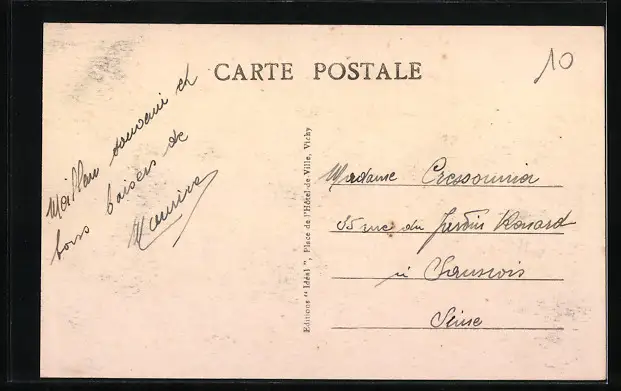 CARTE POSTALE
10
Meilleur souvenir et
bons baisers de
Editions "Idéal", Place de l'Hôtel-de-Ville, Vichy
Madame
rue du Jardin Renard
à
Seine